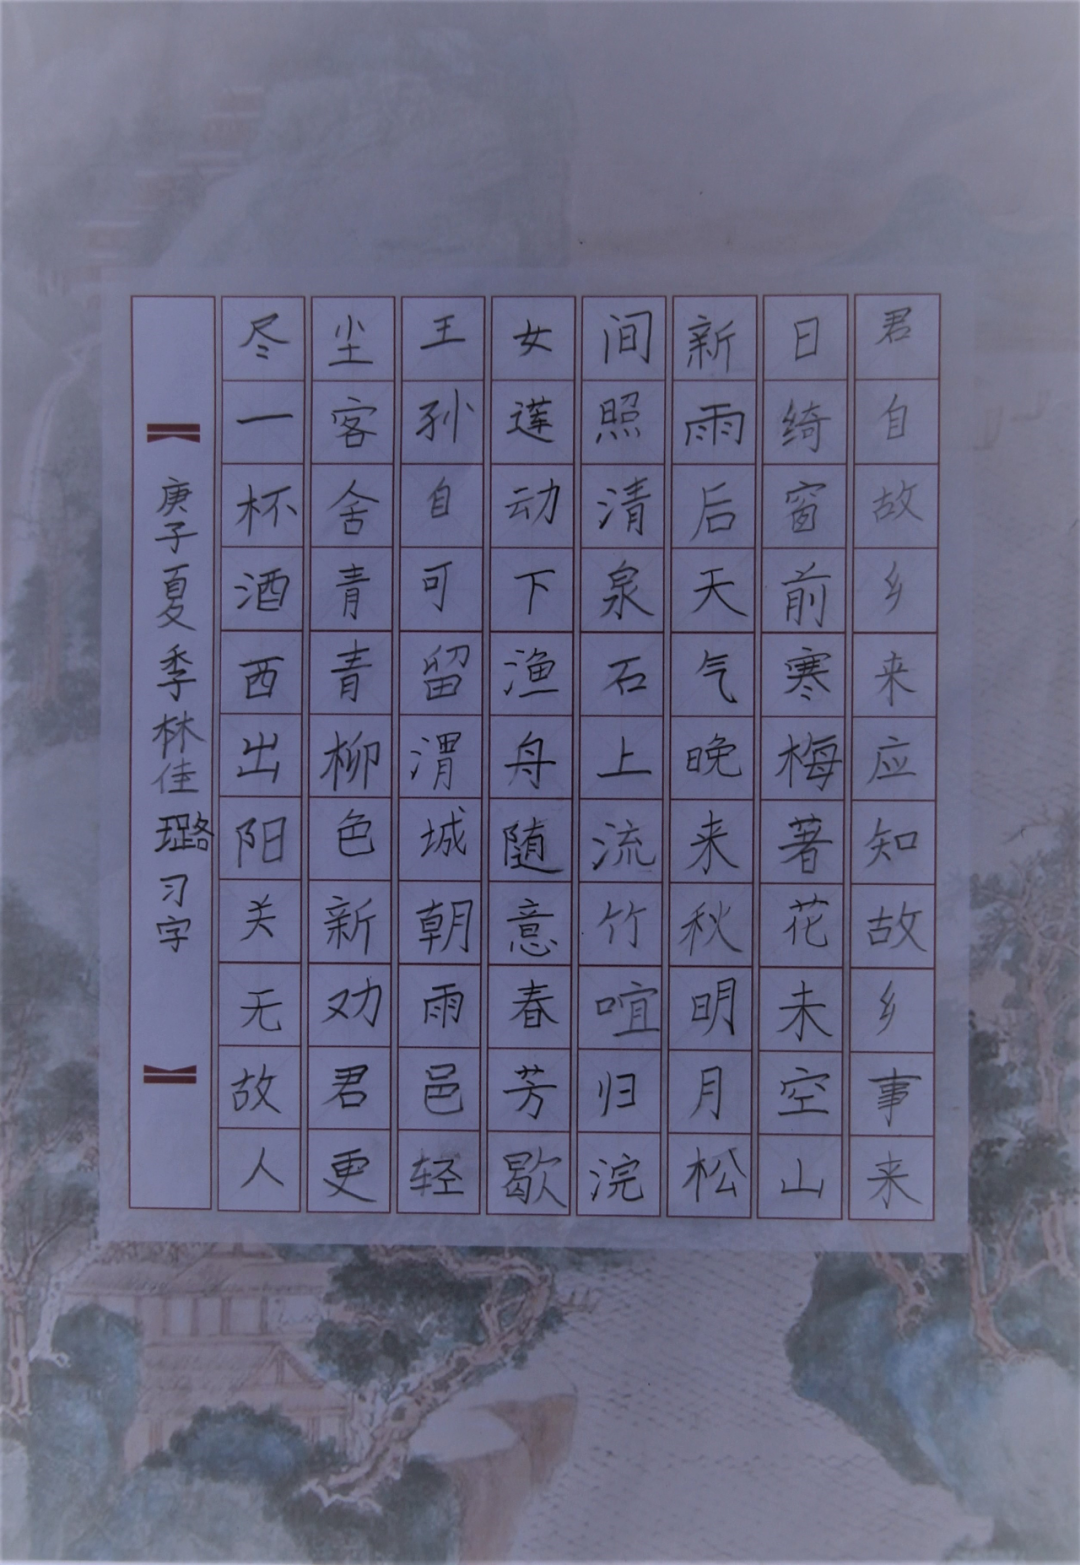 君自故乡来应知故乡事来
日绮窗前寒梅著花未空山
新雨后天气晚来秋明月松
间照清泉石上流竹喧归浣
女莲动下渔舟随意春芳歇
王孙自可留渭城朝雨邑轻
尘客舍青青柳色新劝君更
尽一杯酒西出阳关无故人
庚子夏季林佳璐习字